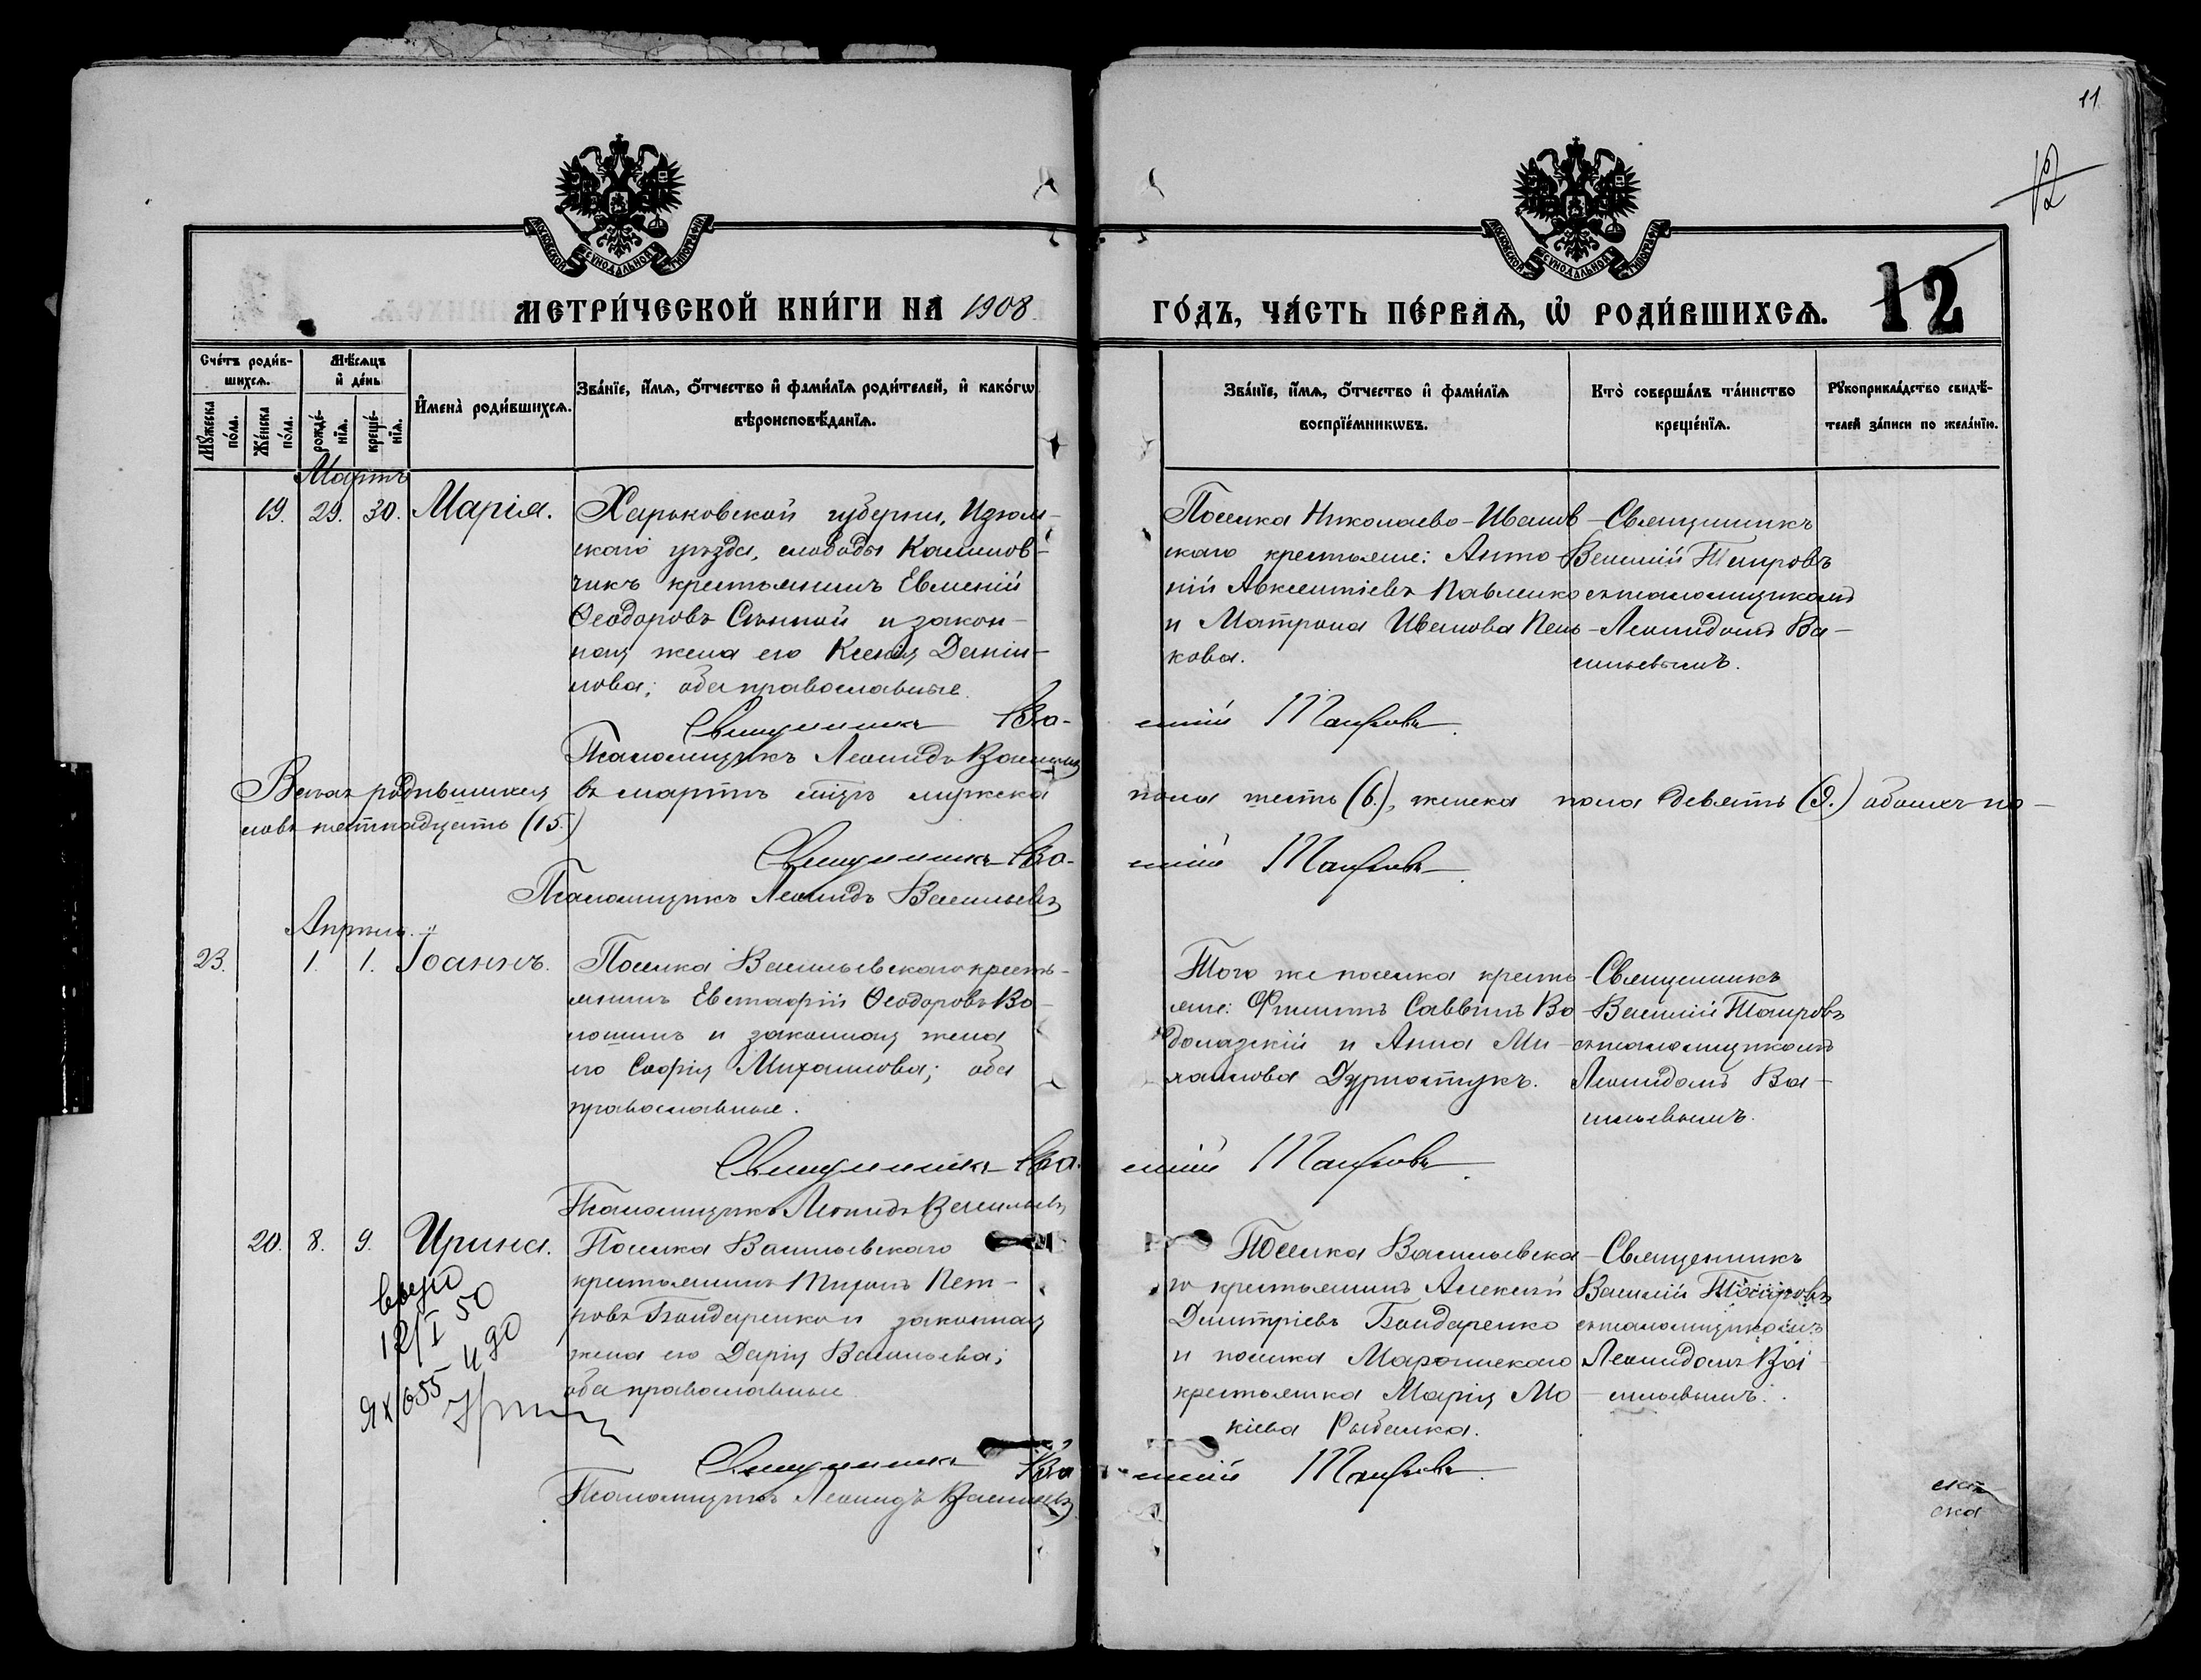 11
12
МОСКОВСКОЙ СУНОДАЛЬНОЙ ТИПОГРАФІИ
МОСКОВСКОЙ СУНОДАЛЬНОЙ ТИПОГРАФІИ
МЕТРИ́ЧЕСКОЙ КНИ́ГИ НА 1908
ГО́ДЪ, ЧА́СТЬ ПЕ́РВАѦ, Ѡ РОДИ́ВШИХСѦ. 12
Сче́тъ роди́в-
шихсѧ.
Мѣ́сѧцъ
и҆ де́нь
Мꙋ́жеска
по́ла.
Же́нска
по́ла.
рожде́-
нїѧ.
креще́-
нїѧ.
И҆мена̀ роди́вшихсѧ.
Зва́нїе, и҆́мѧ, ѻ҆́тчество и҆ фами́лїѧ роди́телей, и҆ како́гѡ
вѣроисповѣ́данїѧ.
Зва́нїе, и҆́мѧ, ѻ҆́тчество и҆ фами́лїѧ
воспрїе́мникѡвъ.
Кто̀ соверша́лъ та́инство
креще́нїѧ.
Рꙋкоприкла́дство свидѣ́-
телей за́писи по жела́нїю.
Мартъ
19. 29. 30. Марія.
Харьковской губерніи, Изюм-
скаго уѣзда, слободы Камыщов-
чикъ крестьянинъ Евмений
Ѳеодоровъ Сѣнной и закон-
ная жена его Ксенія Данiи-
лова; оба православные.
Поселка Николаево-Иванов-
скаго крестьяне: Анто-
ній Авксентіевъ Павленко
и Матрона Иванова Пень-
кова.
Священникъ
Василій Таировъ
съ псаломщикомъ
Леонидомъ Ва-
сильевымъ.
Священникъ Ва-
силій Таировъ.
Псаломщикъ Леонидъ Васильевъ
Всѣхъ родившихся въ мартѣ мѣцѣ мужска пола шесть (6.), женска пола девять (9.) обоихъ по-
ловъ пятнадцать (15.)
Священникъ Ва-
силій Таировъ.
Псаломщикъ Леонидъ Васильевъ
Апрѣль.
23. 1. 1. Іоаннъ.
Поселка Васильевскаго кресть-
янинъ Евстафій Ѳеодоровъ Во-
лошинъ и законная жена
его Софія Михаилова; оба
православные.
Того же поселка кресть-
яне: Филиппъ Саввинъ Во-
долазскій и Анна Ми-
хаилова Дурностукъ.
Священникъ
Василій Таировъ
съ псаломщикомъ
Леонидомъ Ва-
сильевымъ.
Священникъ Ва-
силій Таировъ.
Псаломщикъ Леонидъ Васильевъ
20. 8. 9. Ирина.
Поселка Васильевскаго
крестьянинъ Миронъ Пет-
ровъ Бондаренко и законная
жена его Дарія Васильева;
оба православные.
12/I 50
Поселка Васильевска-
го крестьянинъ Алексій
Димитріевъ Бондаренко
и поселка Марьинскаго
крестьянка Марія Мо-
кіева Рыбалка.
Священникъ
Василій Таировъ
съ псаломщикомъ
Леонидомъ Ва-
сильевымъ.
Священникъ Ва-
силій Таировъ.
Псаломщикъ Леонидъ Васильевъ